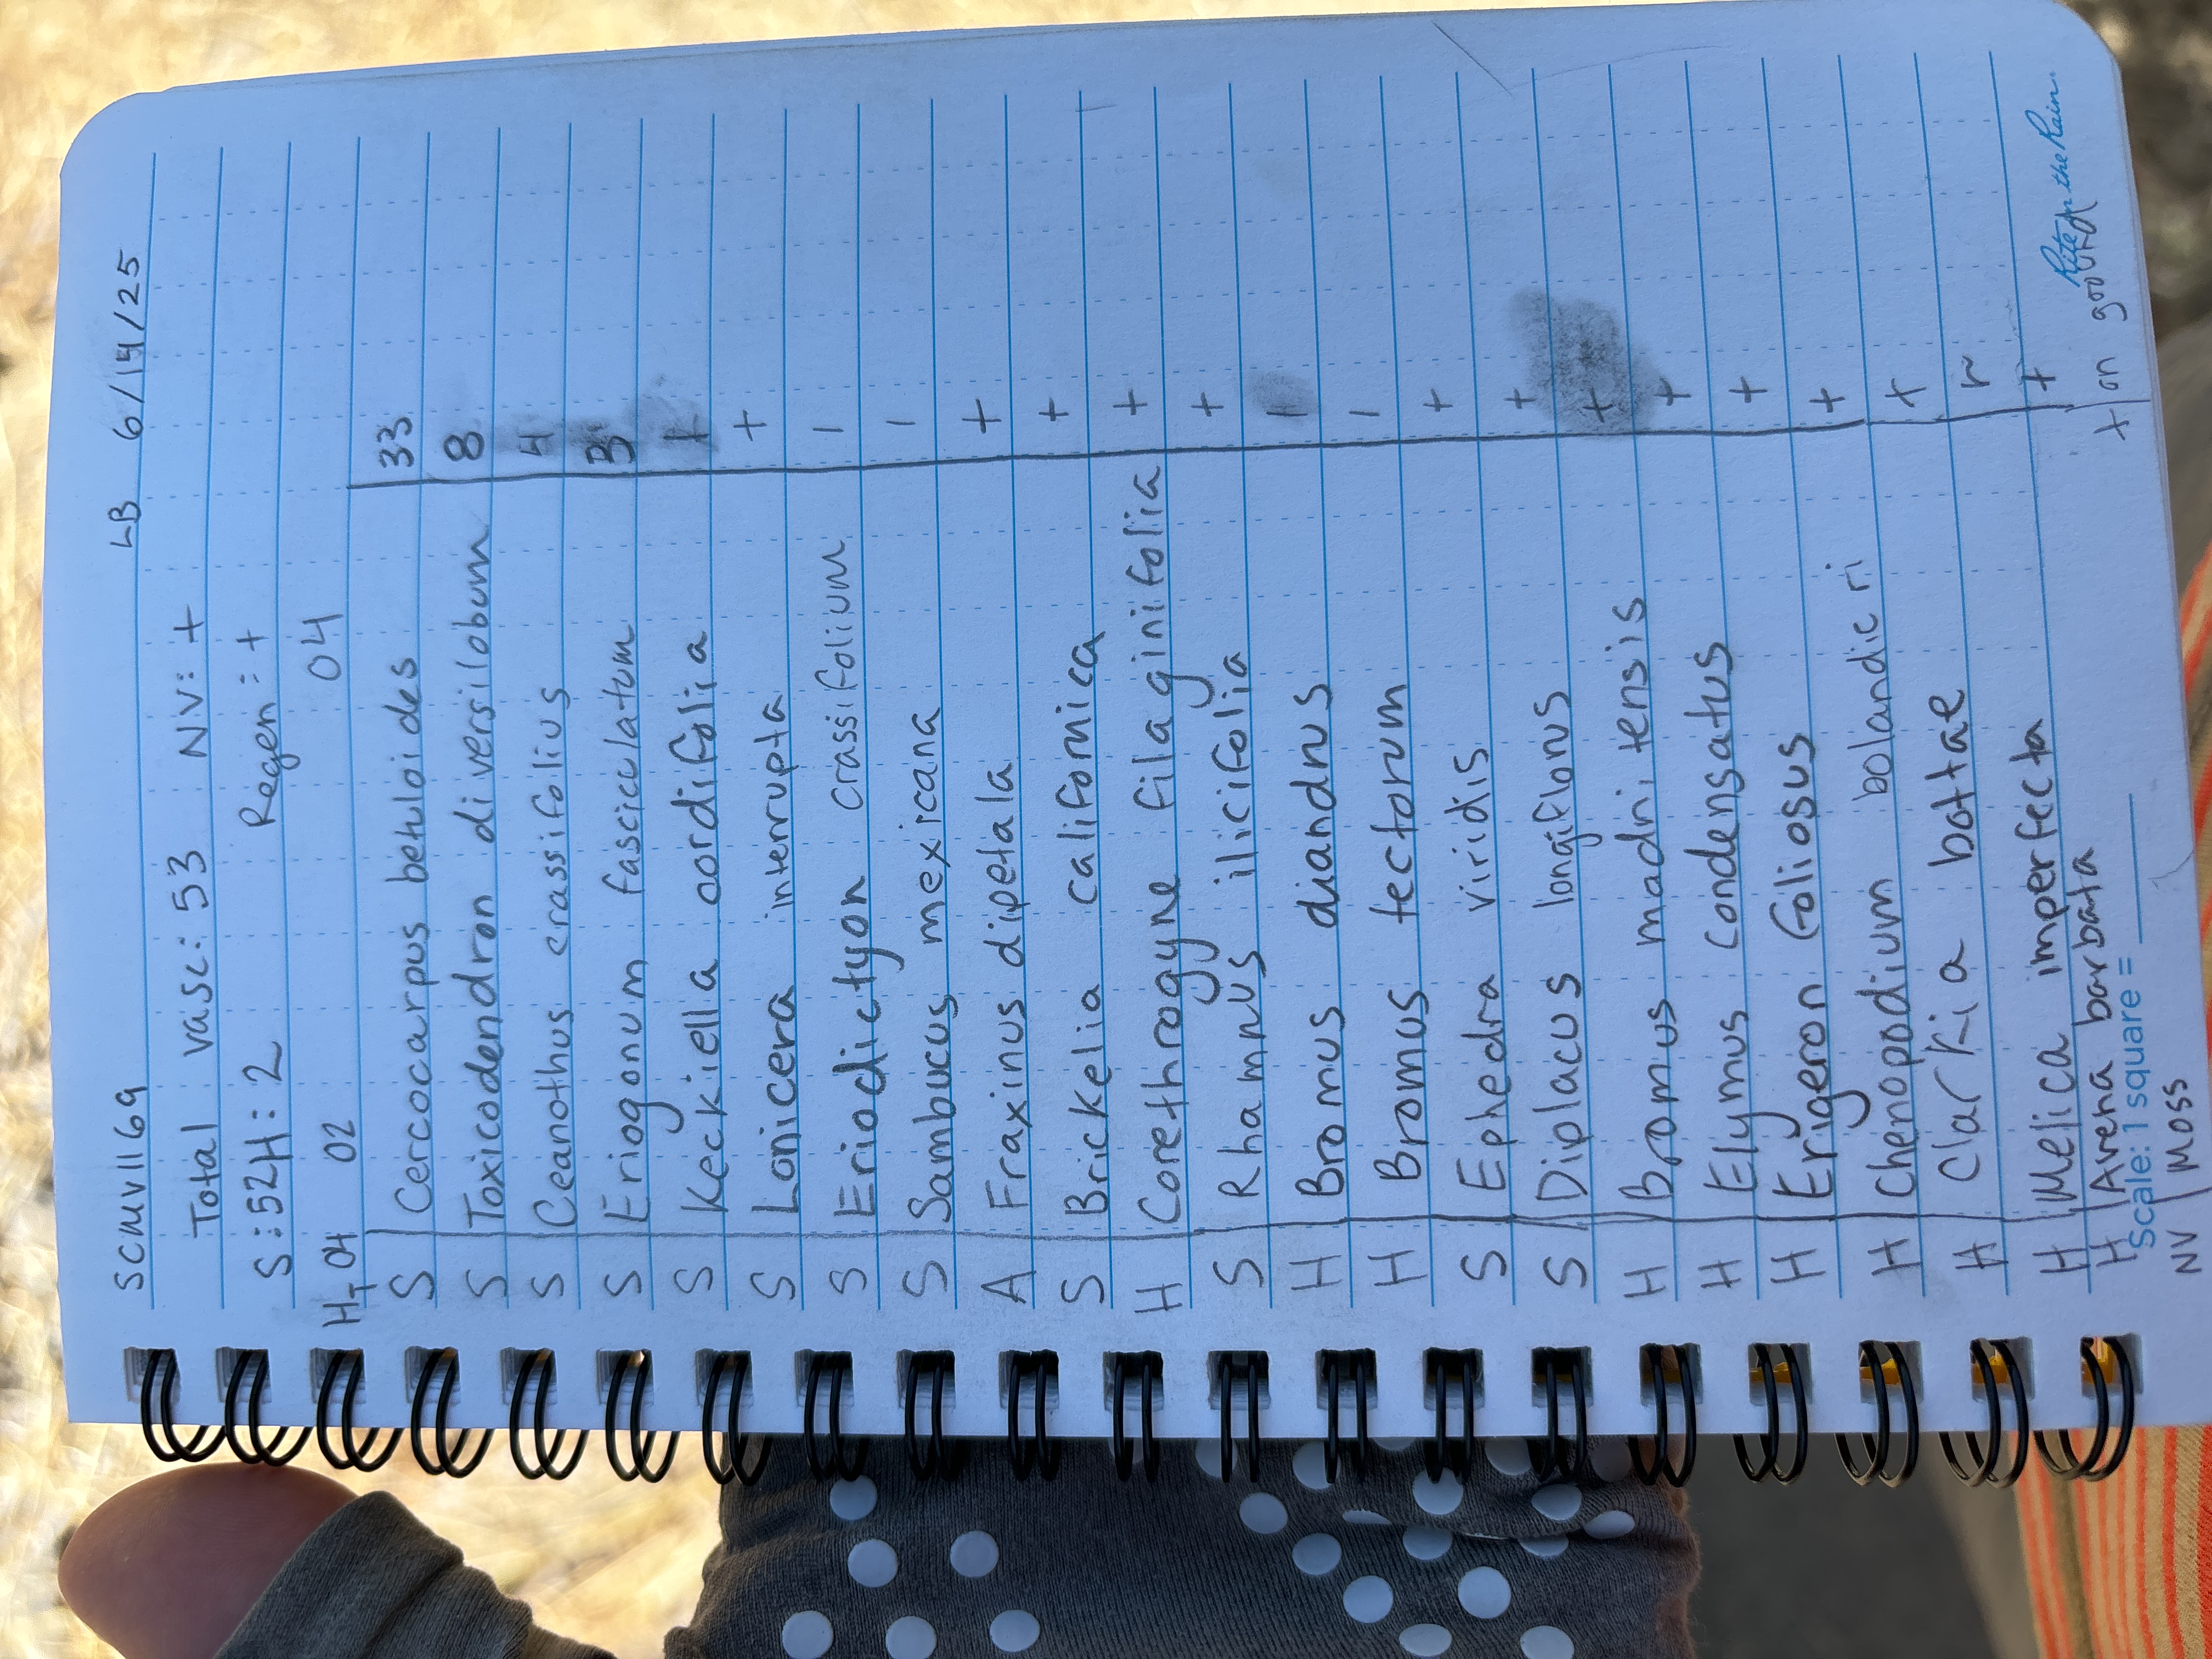 SCMV1169 LB 6/14/25
Total vasc: 53 NV: +
S: 52 H: 2 Regen: +
HT 04 02 04
S Cercocarpus betuloides 33
S Toxicodendron diversilobum 8
S Ceanothus crassifolius 4
S Eriogonum fasciculatum 3
S Keckiella cordifolia +
S Lonicera interrupta +
S Eriodictyon crassifolium 1
S Sambucus mexicana 1
A Fraxinus dipetala +
S Brickelia californica +
H Corethrogyne filaginifolia +
S Rhamnus ilicifolia +
H Bromus diandrus 1
H Bromus tectorum 1
S Ephedra viridis +
S Diplacus longiflorus +
H Bromus madritensis +
H Elymus condensatus +
H Erigeron foliosus +
H Chenopodium +
H Clarkia bottae r
H Melica imperfecta +
H Avena barbata +
Scale: 1 square = ____ Rite in the Rain
NV Moss + on